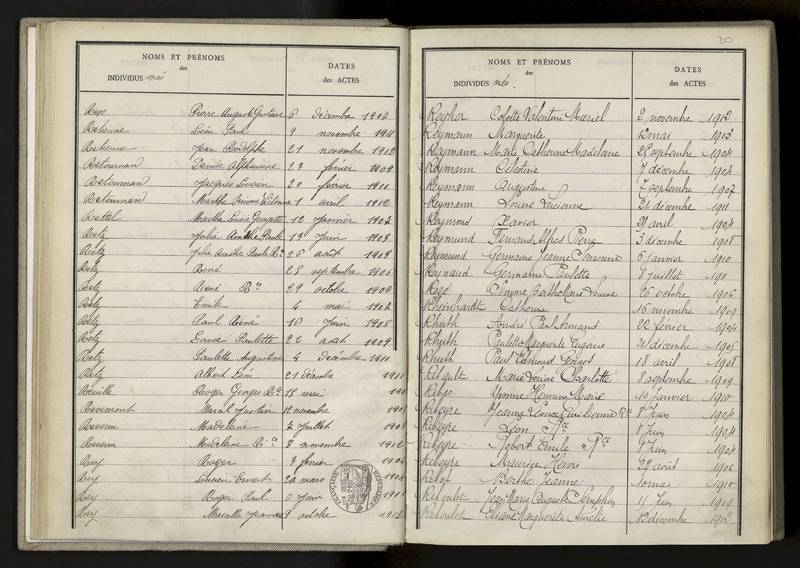 NOMS ET PRÉNOMS
des
INDIVIDUS nés
DATES
des ACTES
Pierre Auguste Gustave 6 décembre 1907
Retienne Léon Paul 9 novembre 1911
Retienne Jean Rodolphe 21 novembre 1912
Retournan Denise Alphonsine 23 février 1909
Retournan Jacques Lucien 20 février 1911
Retournan Marthe 1 avril 1912
Rettel Marthe Lucie Georgette 12 janvier 1907
Retz Julia Amélie Paule 13 juin 1908
Retz Julia Amélie Paule Rce 26 août 1908
Retz René 28 septembre 1906
Retz René Rce 29 octobre 1908
Retz Emile 4 mai 1907
Retz Paul René 16 juin 1908
Retz Paulette 22 août 1909
Retz Paulette Augustine 4 décembre 1910
Retz Albert 21 décembre
Reuille Roger Georges Rce 15 mai
Revemont Marcel Justin 12 novembre
Madeleine 7 juillet 1908
Madeleine Rce 8 novembre 1902
Rey Roger 3 février 1904
Rey Ernest 20 mars 1904
Rey Roger Paul juin
Rey Marcelle Jeanne 9 octobre 1912
20
NOMS ET PRÉNOMS
des
INDIVIDUS nés.
DATES
des ACTES
Reyher Colette Valentine Muriel 2 novembre 1912
Reymann Marguerite 12 mai 1903
Reymann Marie Catherine Madeleine 25 septembre 1904
Reymann Célestine 7 décembre 1904
Reymann Augustine 7 septembre 1907
Reymann Louise Lucienne 24 décembre 1911
Reymond Xavier 21 avril 1904
Reymund Fernand Alfred Pierre 3 décembre 1908
Reymund Germaine Jeanne 6 janvier 1910
Reynaud Germaine Paulette 9 juillet 1911
Simone Berthe Marie Louise 26 octobre 1906
Rheinhardt Catherine 16 novembre 1909
Rhuth André Paul Armand 20 février 1904
Rhuth Paulette Marguerite Eugénie 21 décembre 1905
Rhuth Paul Edmond Georges 18 avril 1908
Ribault Marie Louise Charlotte 8 septembre 1909
Ribes Yvonne Marie 10 janvier 1910
Ribeyre Jeanne Léonce Emilienne Rce 8 juin 1904
Ribeyre Léon Rce 8 juin 1904
Ribeyre Robert Emile Rce 8 juin 1904
Ribeyre Maurice Henri 27 août 1906
Ribot Berthe Jeanne 10 mai 1910
Riboulet Jean Marie Auguste 15 juin 1909
Riboulot Marguerite Amélie 12 décembre 1902